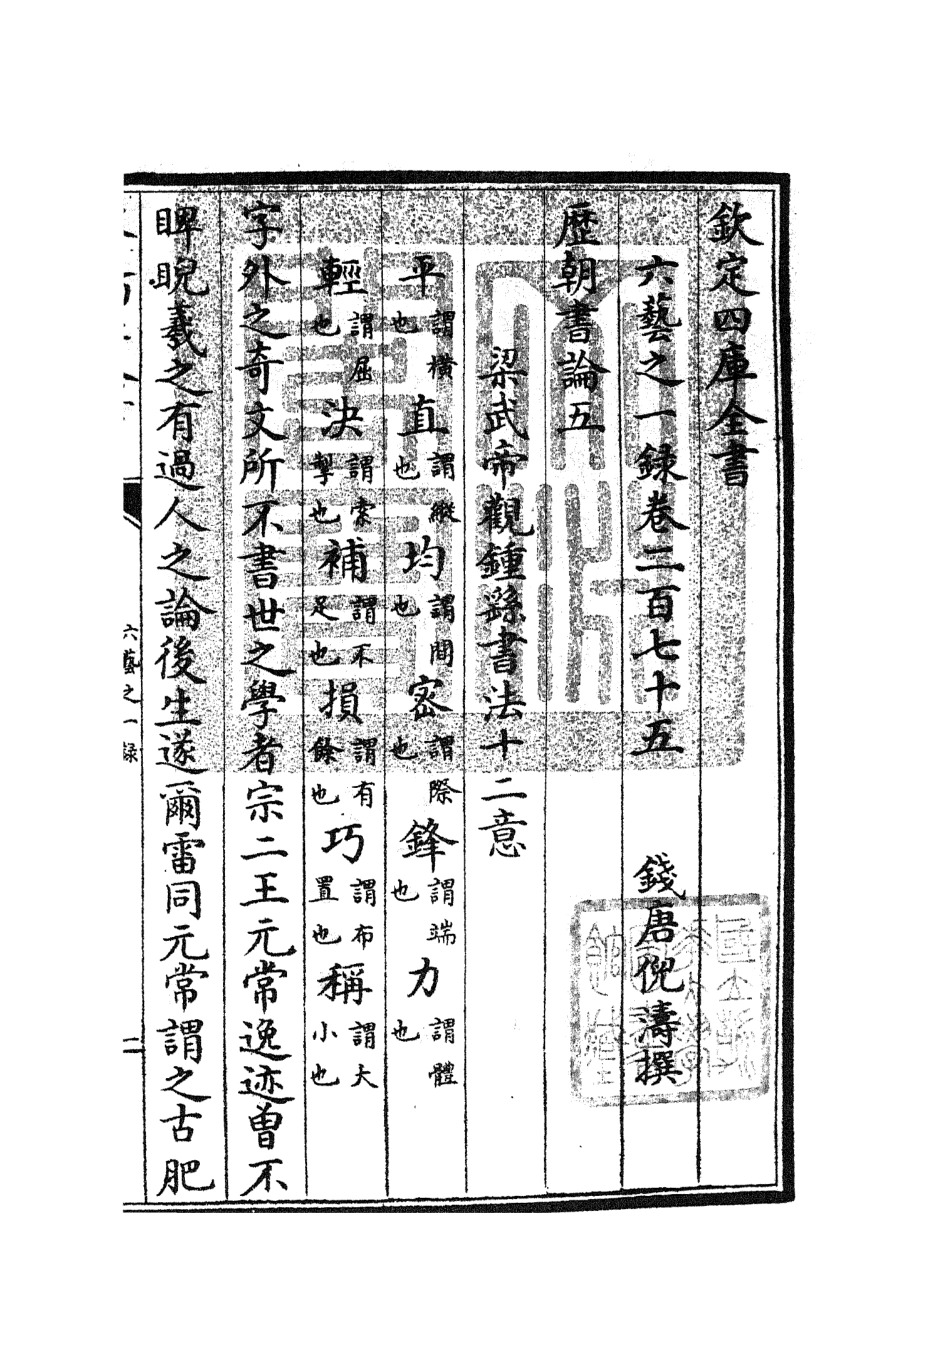 欽定四庫全書
六藝之一錄卷二百七十五
錢唐倪濤撰
歷朝書論五
梁武帝觀鍾繇書法十二意
平謂橫也直謂縱也均謂間也密謂際也鋒謂端也力謂體也
輕謂屈也決謂索掣也補謂不足也損謂有餘也巧謂布置也稱謂大小也
字外之奇文所不書世之學者宗二王元常逸迹曽不
睥睨羲之有過人之論後生遂爾雷同元常謂之古肥
六藝之一録
二